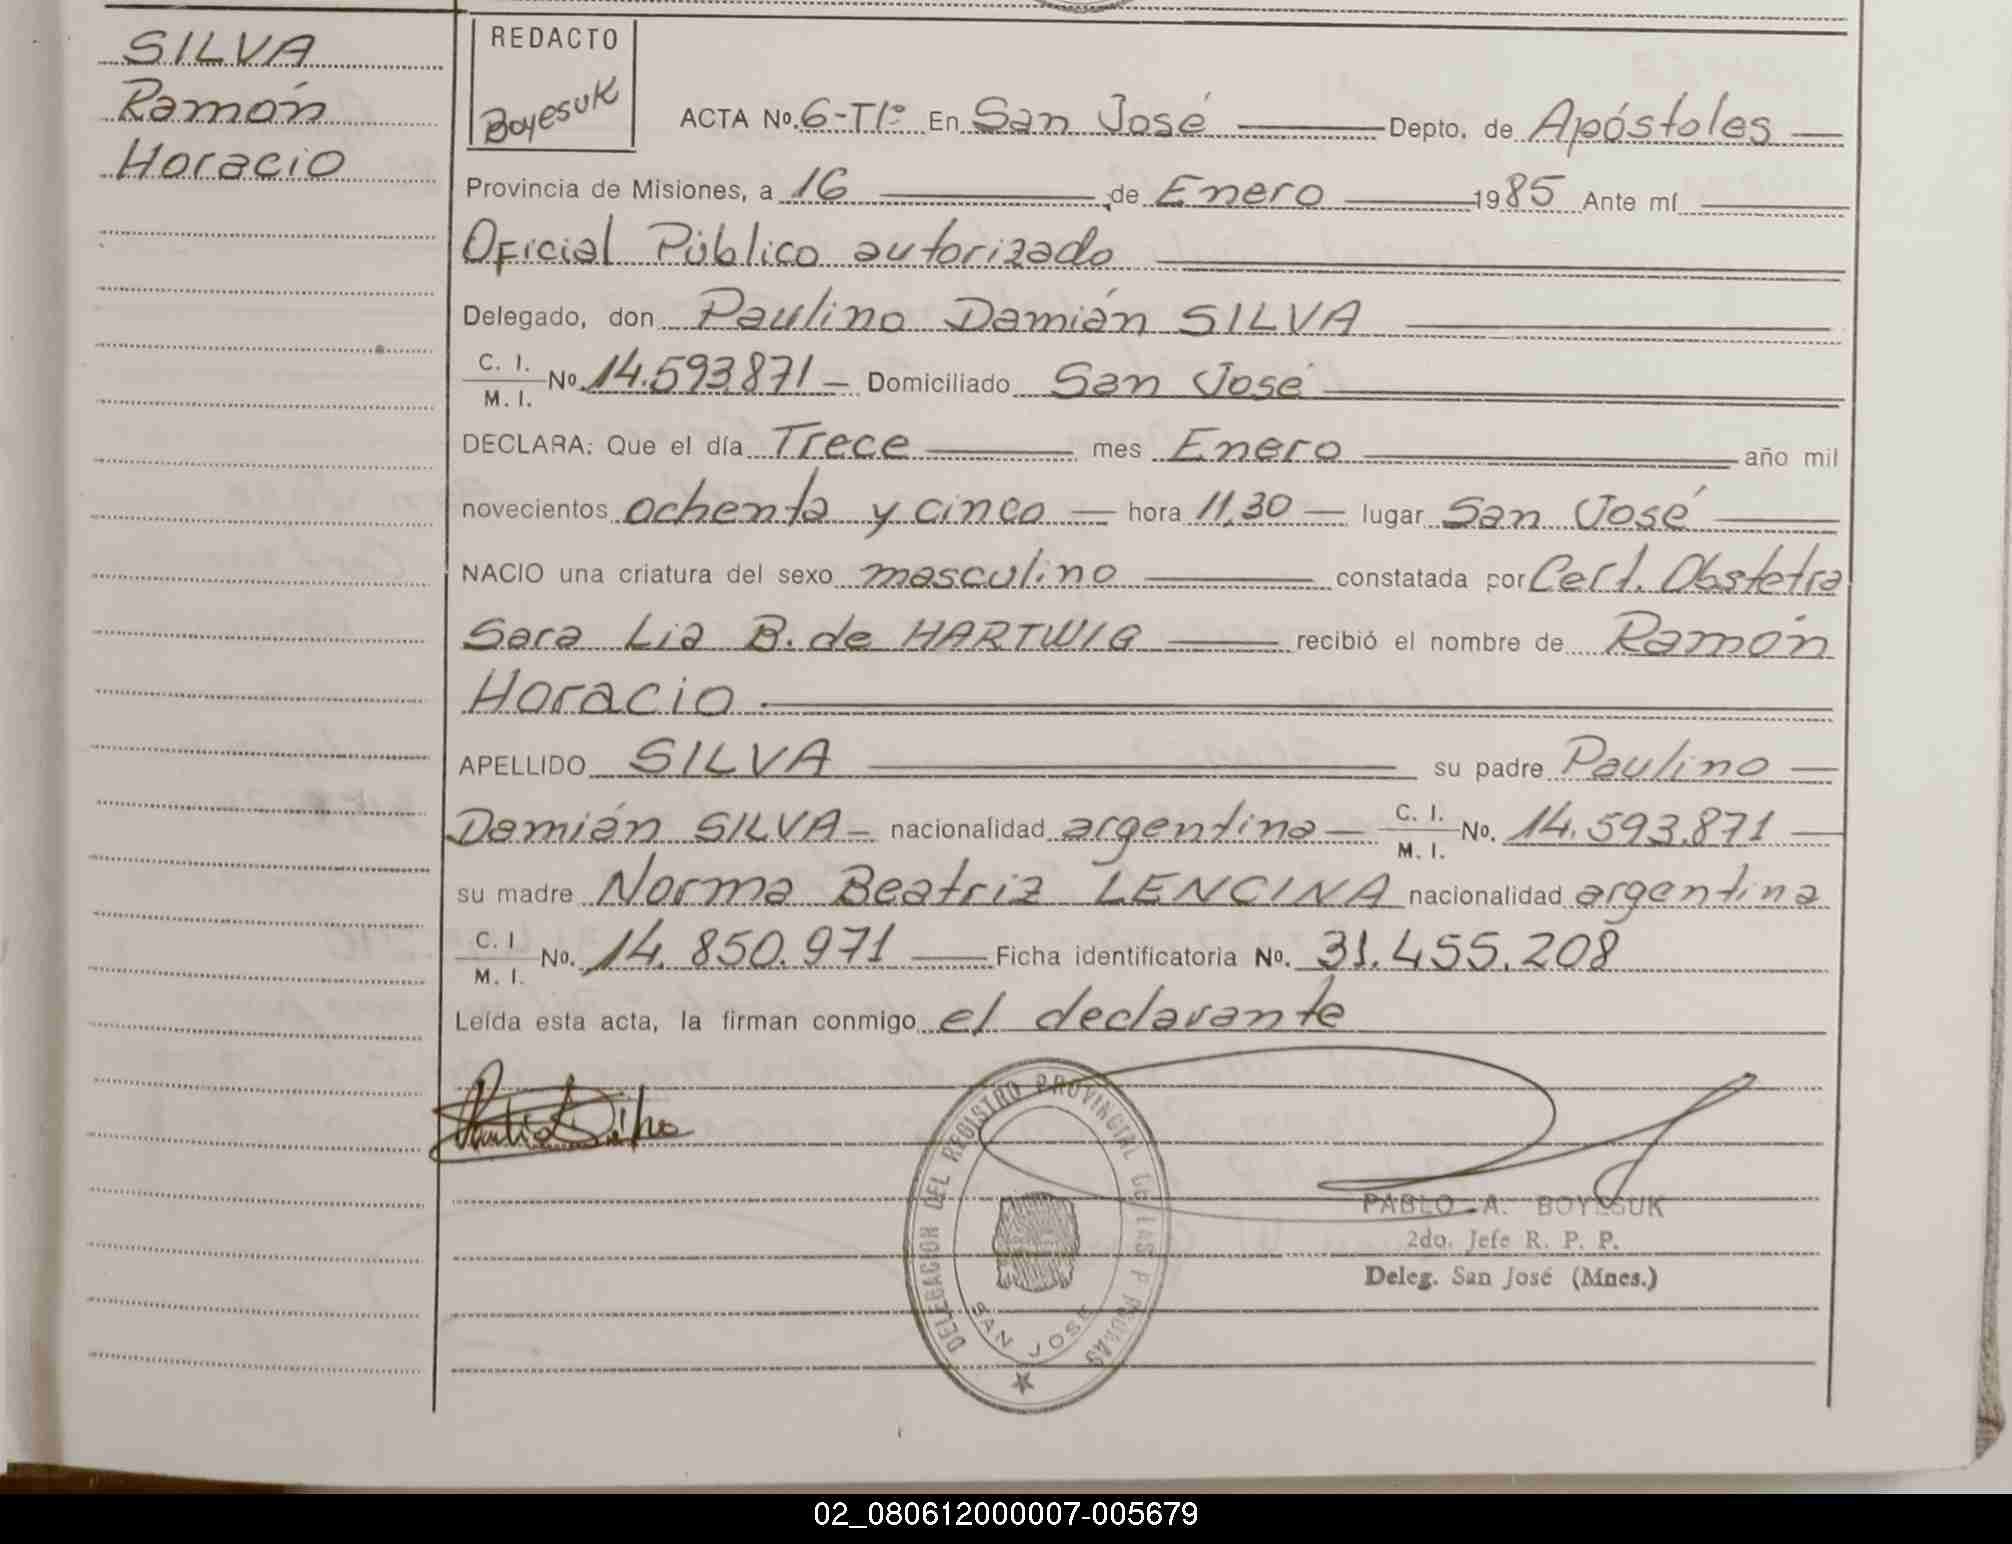 SILVA
Ramón
Horacio
REDACTO
Boyesuk
ACTA Nº 6-T1º En San José Depto. de Apóstoles
Provincia de Misiones, a 16 de Enero 1985 Ante mí
Oficial Público autorizado
Delegado, don Paulino Damián SILVA
C. I. M. I. Nº 14.593.871 Domiciliado San José
DECLARA: Que el día Trece mes Enero año mil
novecientos ochenta y cinco hora 11,30 lugar San José
NACIO una criatura del sexo masculino constatada por Cert. Obstetra
Sara Lia B. de HARTWIG recibió el nombre de Ramón
Horacio.
APELLIDO SILVA su padre Paulino
Damián SILVA nacionalidad argentina C. I. M. I. No. 14.593.871
su madre Norma Beatriz LENCINA nacionalidad argentina
C. I M. I. No. 14.850.971 Ficha identificatoria Nº. 31.455.208
Leída esta acta, la firman conmigo el declarante
DELEGACION DEL REGISTRO PROVINCIAL DE LAS PERSONAS
SAN JOSE
PABLO A. BOYESUK
2do. Jefe R. P. P.
Deleg. San José (Mnes.)
02_080612000007-005679